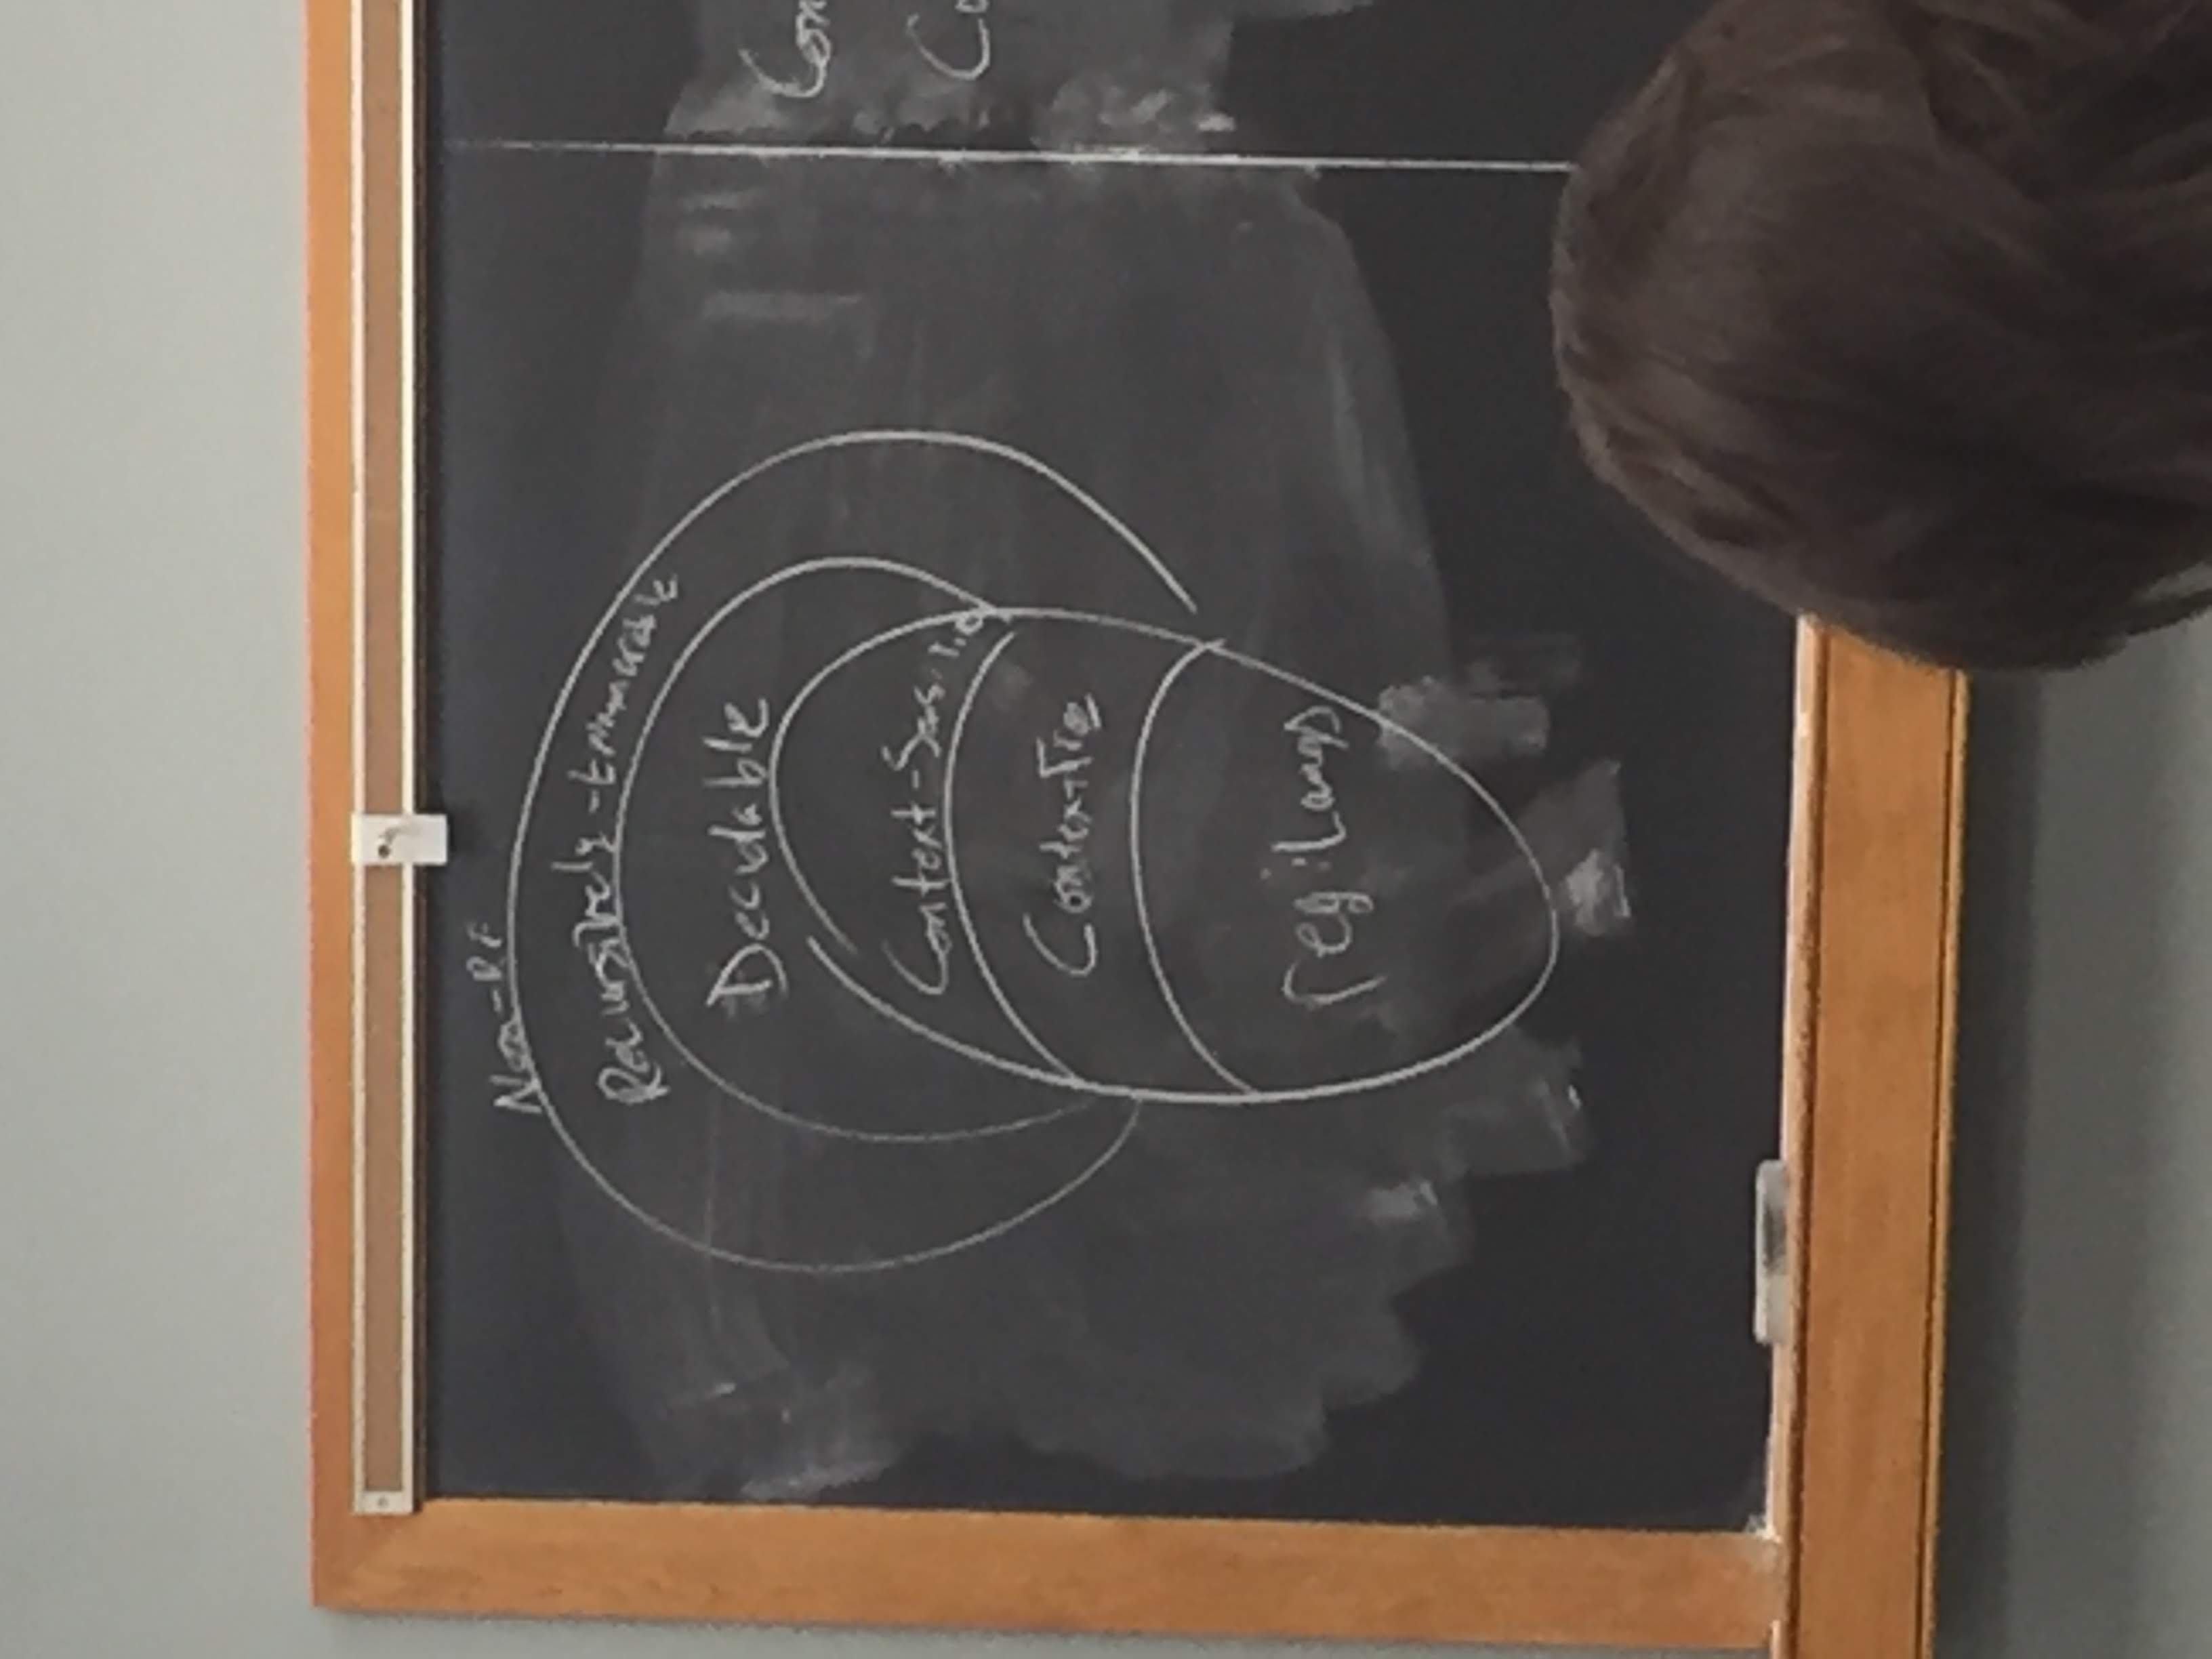 Non-RE
Recursively-Enumerable
Decidable
Context-Sensitive
Context-Free
reg. Langs
Con
Co